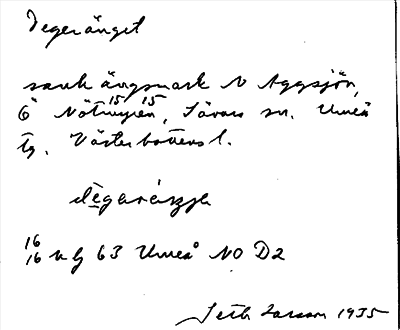 Degeränget
sank ängsmark N Aggsjön,
Ö Nötmyrén, Sävars sn. Umeå
tg. Västerbottens l.
16 16 u lj 63 Umeå NO D2
Seth Larsson 1935